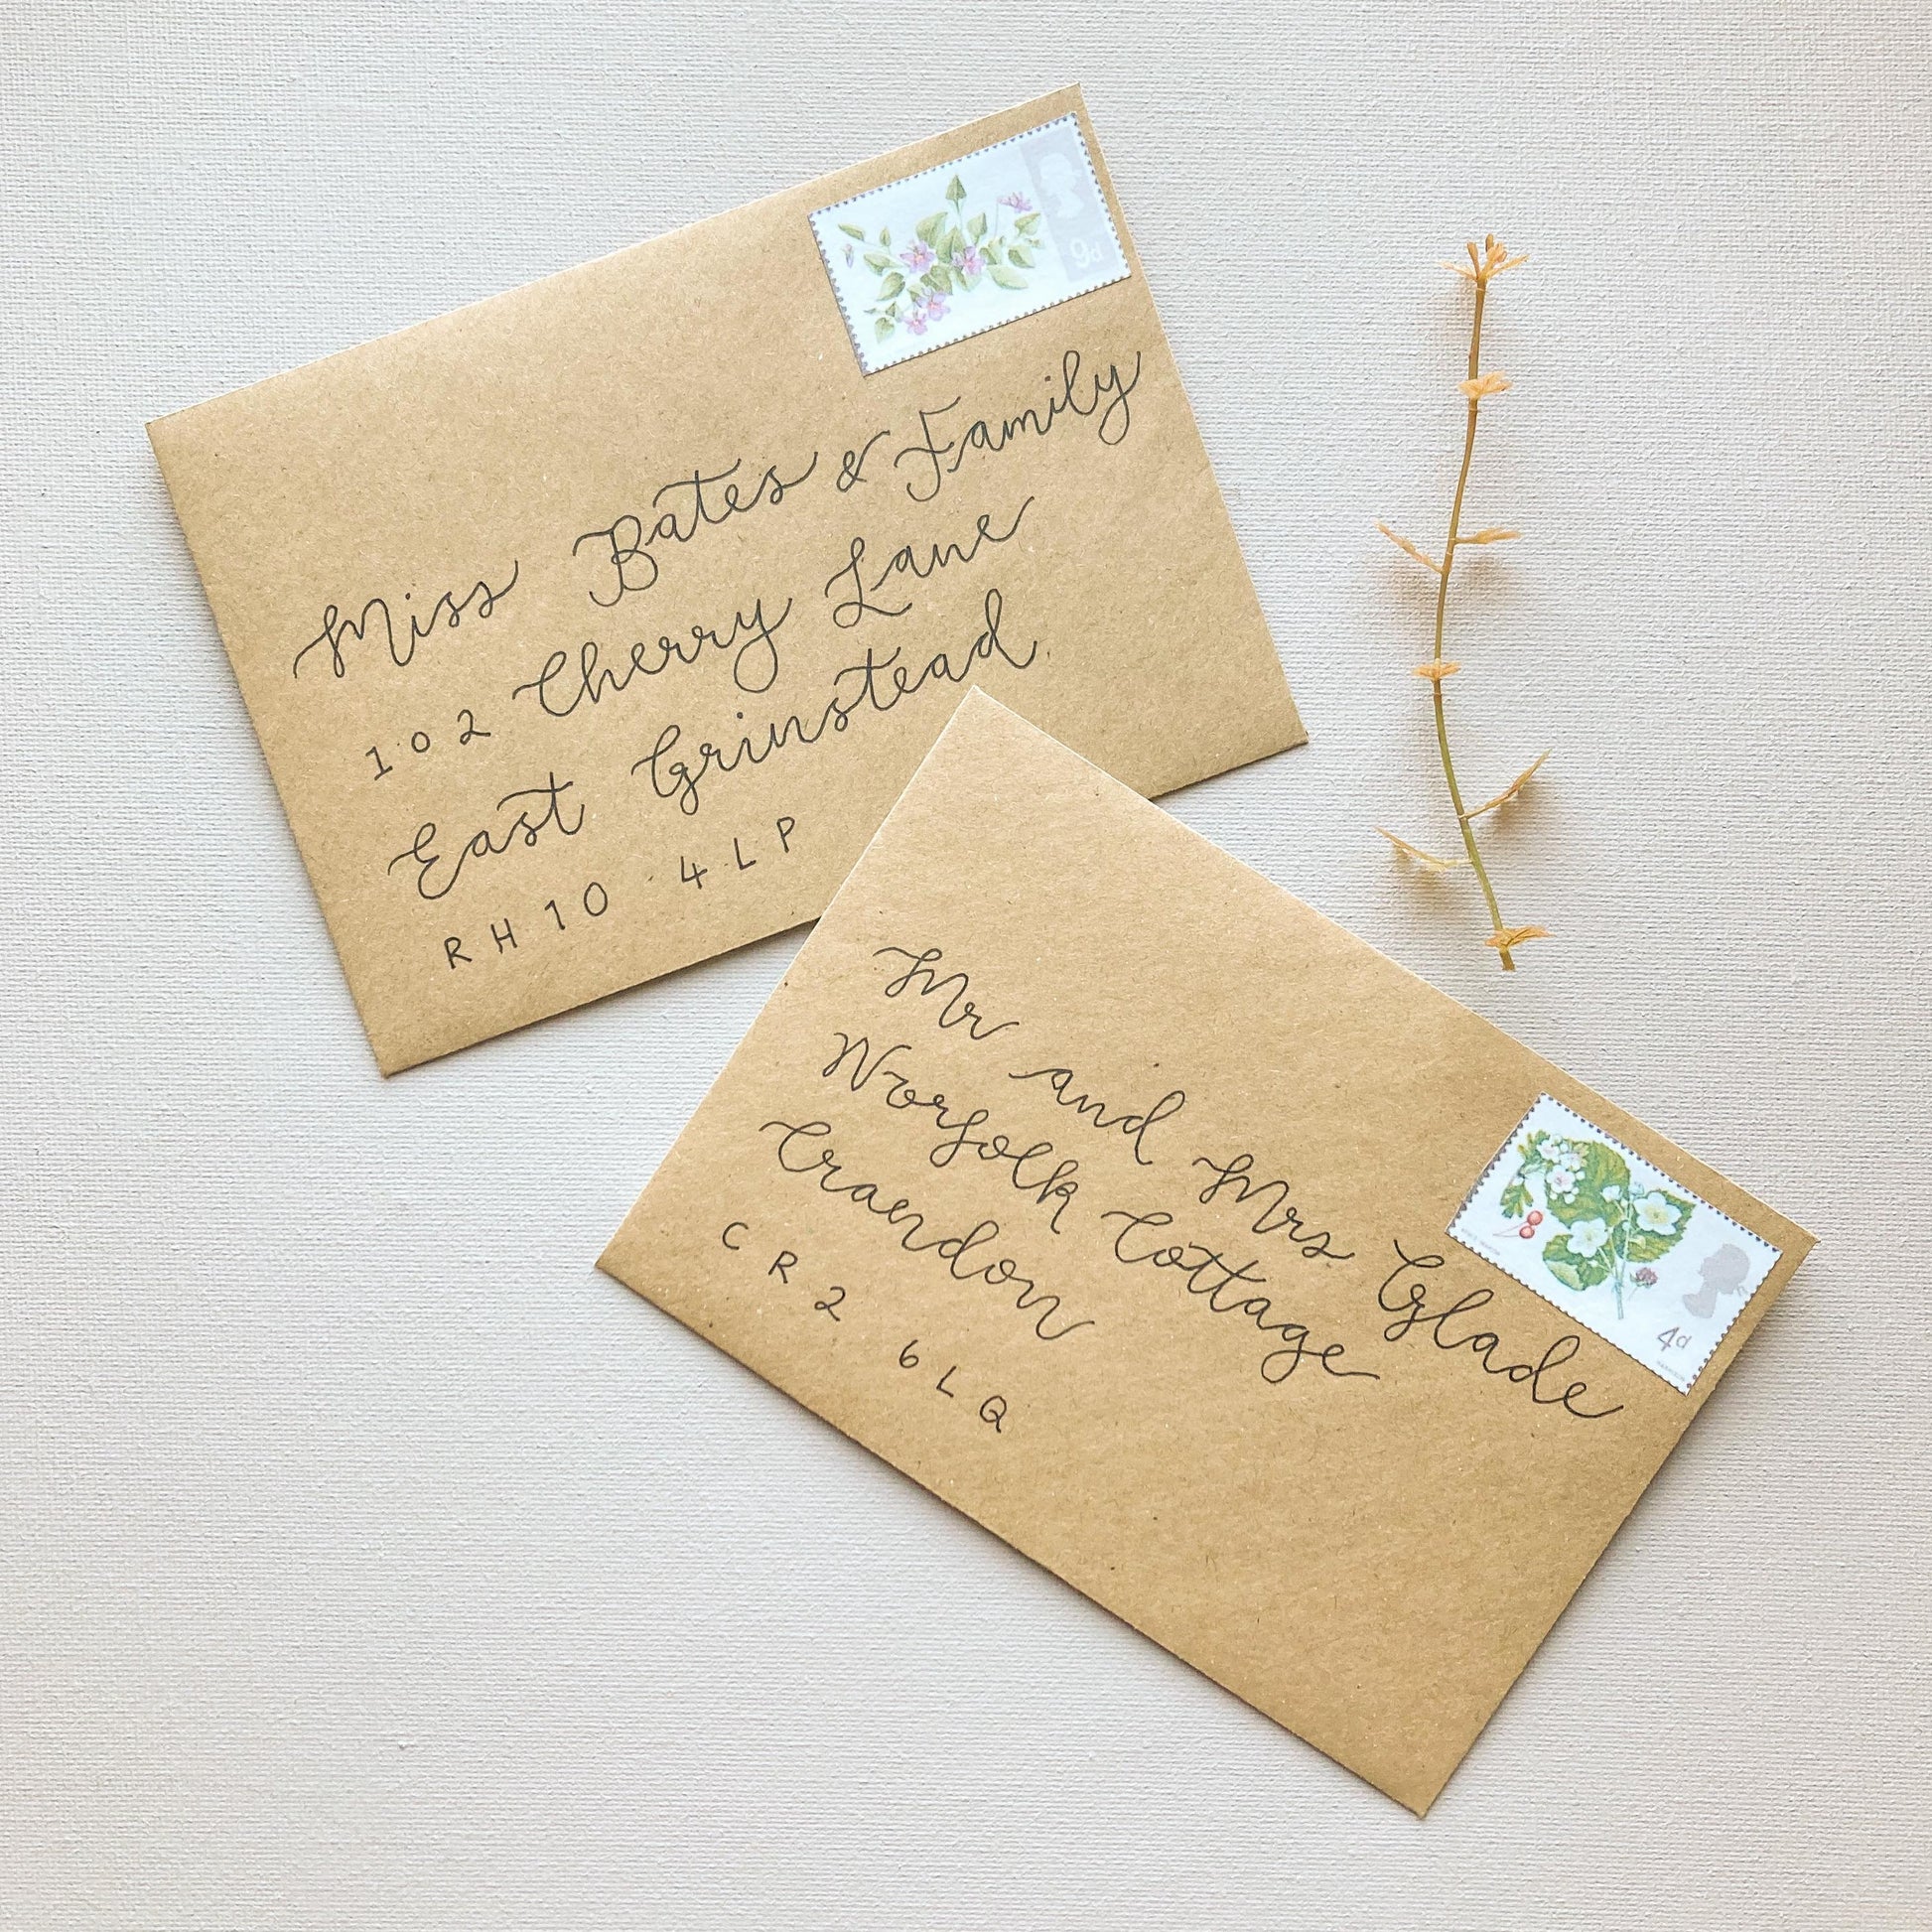 9d
Miss Bates & Family
102 Cherry Lane
East Grinstead
RH10 4LP
Mr and Mrs Glade
Norfolk Cottage
Craendon
CR2 6LQ
4d